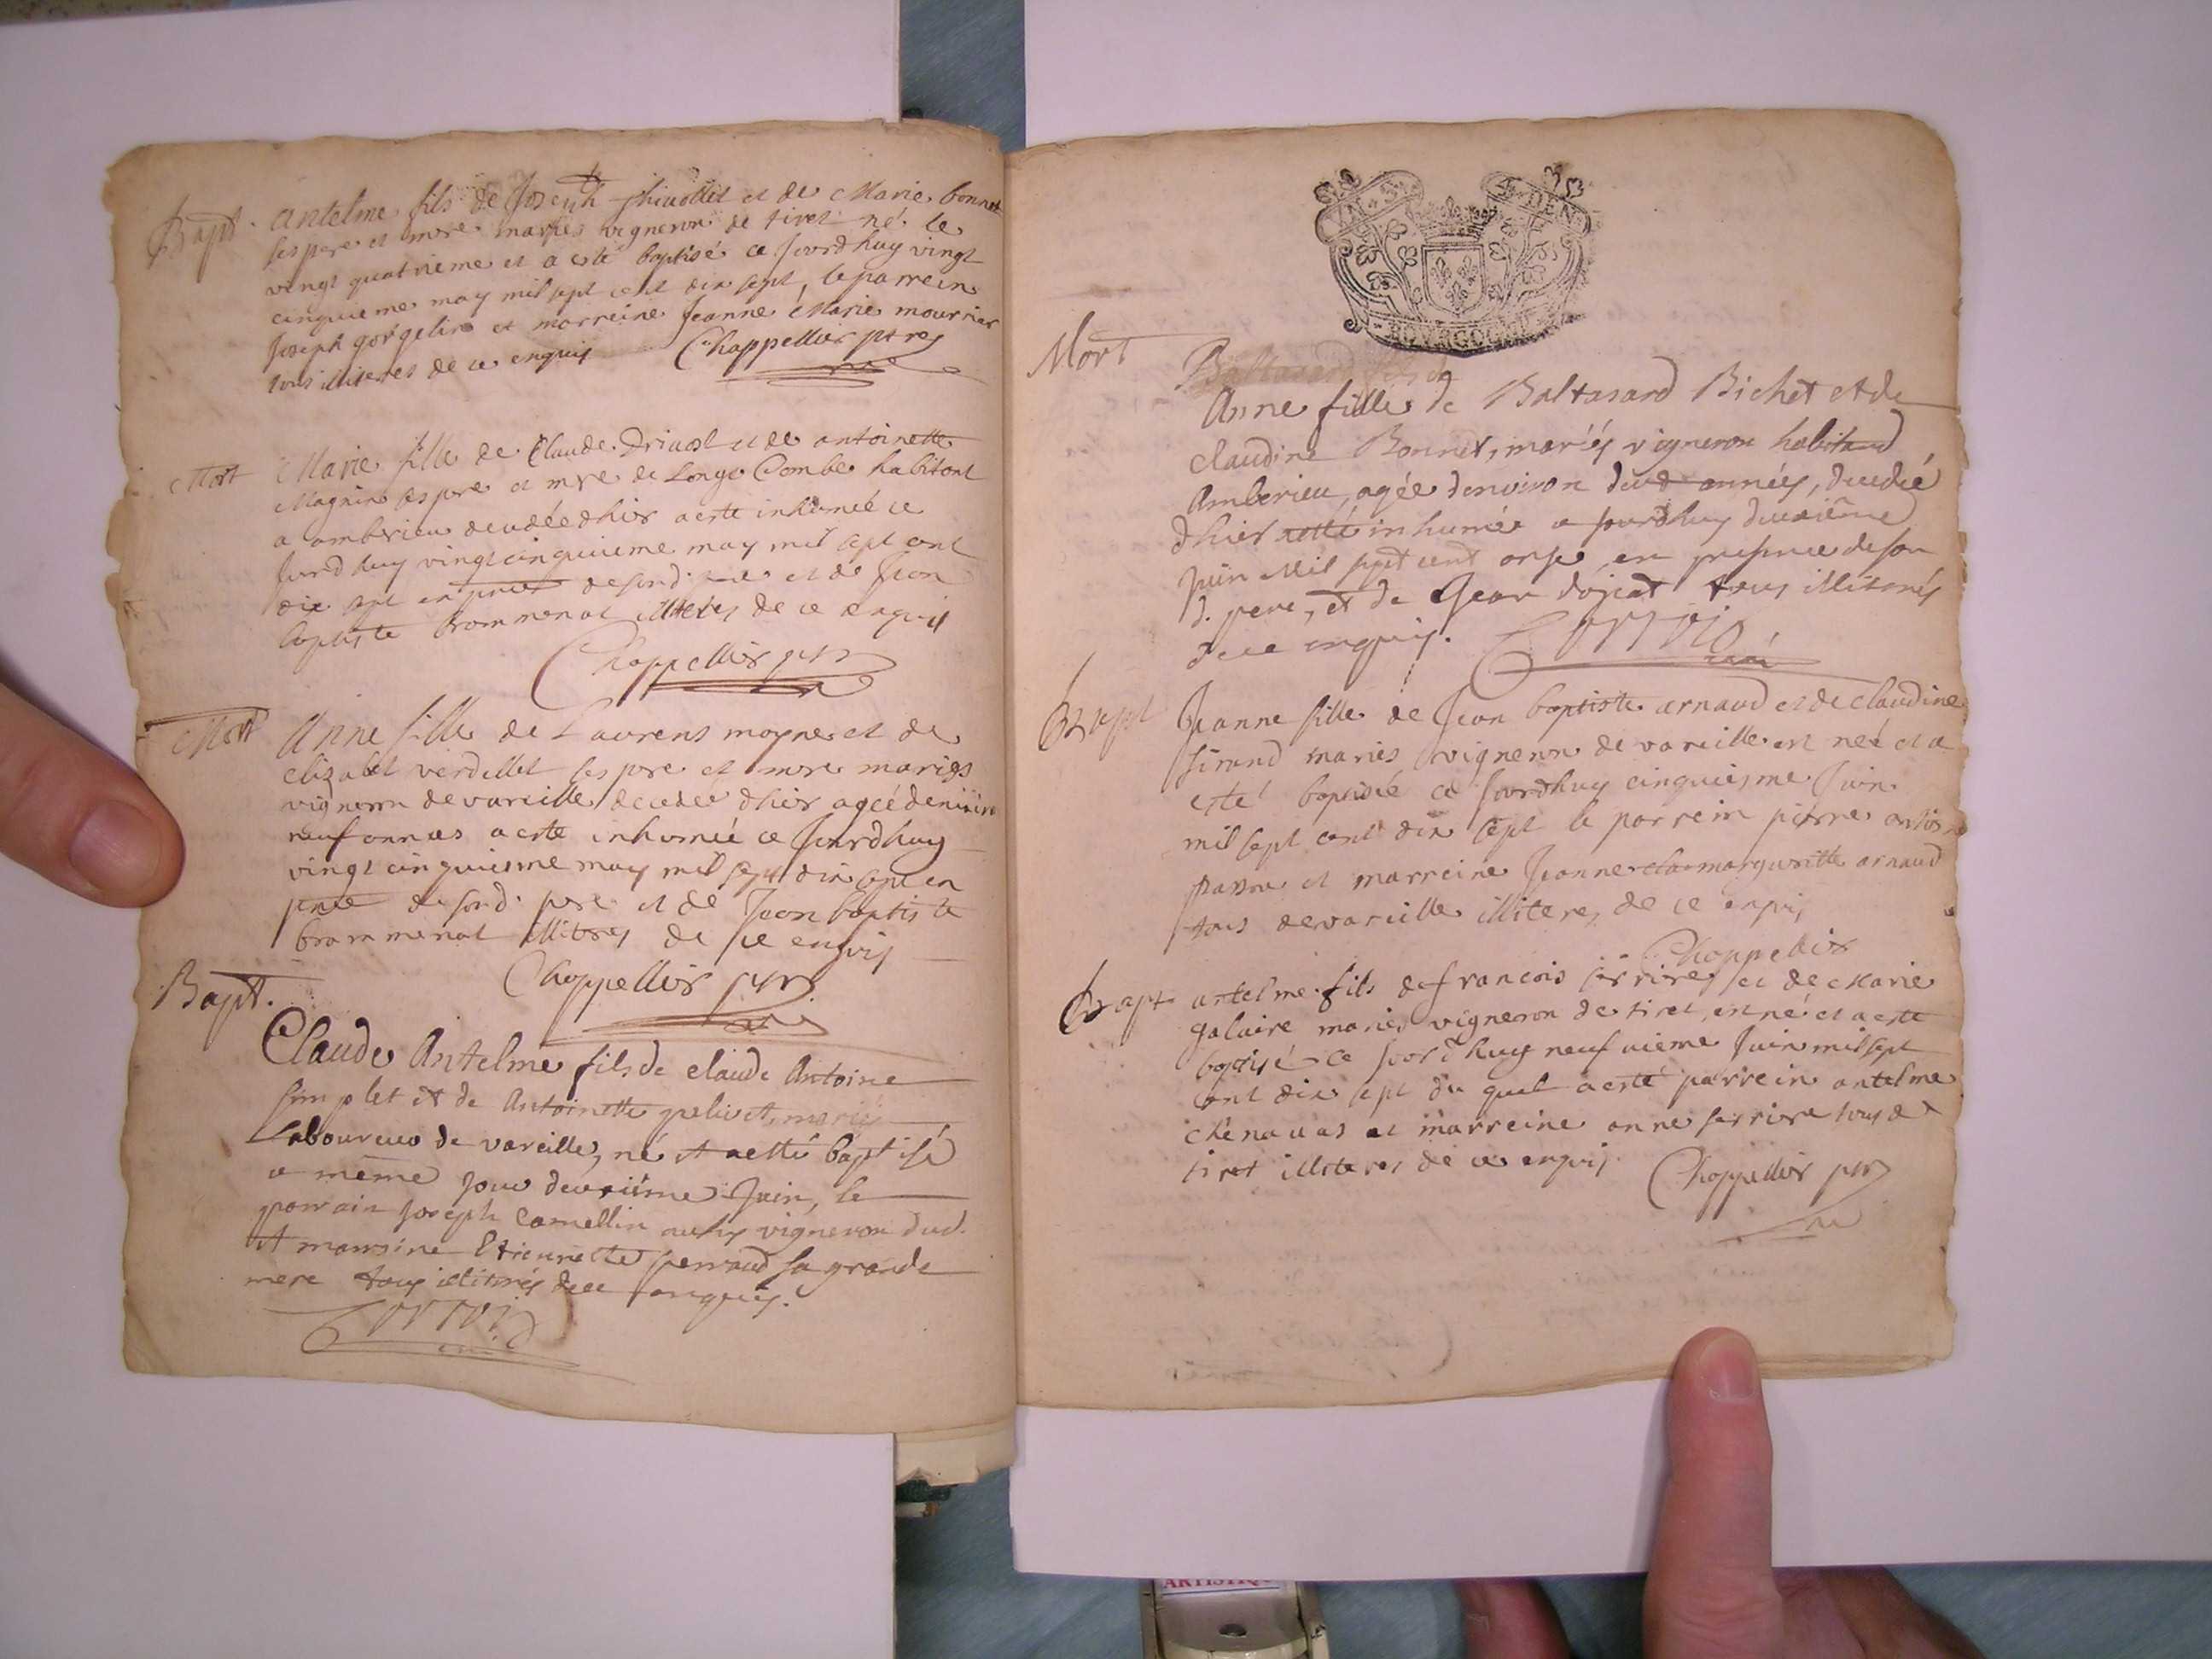 Bapt. antelme fils de Joseph et de Marie bonnet
ses pere et mere mariés vigneron de tiret né le
vingt quatrieme et a esté baptisé ce Jourdhuy vingt
cinquieme may mil sept cent dix sept, le parrein
Joseph gorgelin et marreine Jeanne Marie mourrier
tous illiteres de ce enquis Chappellier ptre
Mort Marie fille de Claude et de antoinette
Magnin ses pere et mere de Longe Combe habitant
a amberieu decedée dhier a este inhumée ce
Jourdhuy vingt cinquieme may mil sept cent
dix sept en pnce de sond. pere et de Jean
baptiste brommenat illiteres de ce enquis
Chappellier ptre
Mort Anne fille de Laurens moyne et de
elizabet verdellet ses pere et mere maries
vigneron de vareille decedée dhier agée denviron
neuf annees a este inhumée ce Jourdhuy
vingt cinquiesme may mil sept dix sept en
pnce de sond. pere et de Jean baptiste
brommenat illitres de ce enquis
Chappellier ptre
Bapt.
Claude Antelme fils de claude Antoine
simplet et de Antoinette mariés
Laboureur de vareille, né et a esté baptisé
ce meme jour deuxiême Juin, le
parrain Joseph Camellin vigneron dud.
et marreine Etiennette perraud sa grande
mere tous illitérés de ce enquis.
BOURGOGNE
Mort
Baltasard fils de
Anne fille de Baltasard Bichet et de
claudine Bonnet, mariés vigneron habitand
Amberieu, agée denviron deux années, decedée
dhier a esté inhumée ce jourdhuy deuxiême
juin Mil sept cent en presence de son
d. pere, et de Jean dojeat tous illiterés
de ce enquis.
Bapt Jeanne fille de Jean baptiste arnaud et de claudine
sirand mariés vigneron de vareille est neé et a
esté baptisée ce Jourdhuy cinquiesme Juin
mil sept cent dix sept le parrein pierre
et marreine Jeanne marguerite arnaud
tous de vareille illiteres de ce enquis
Chappellier
Bapt antelme fils de francois ferrire et de Marie
galaire maries vigneron de tiret est né et a este
baptisé ce Jourdhuy neufvieme Juin mil sept
cent dix sept du quel a esté parrein antelme
chenavas et marreine anne ferrire tous de
tiret illiteres de ce enquis
Chappellier ptre